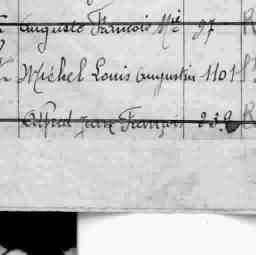 Auguste François Mie 97 R
Michel Louis Augustin 1101
Alfred Jean François 239 R